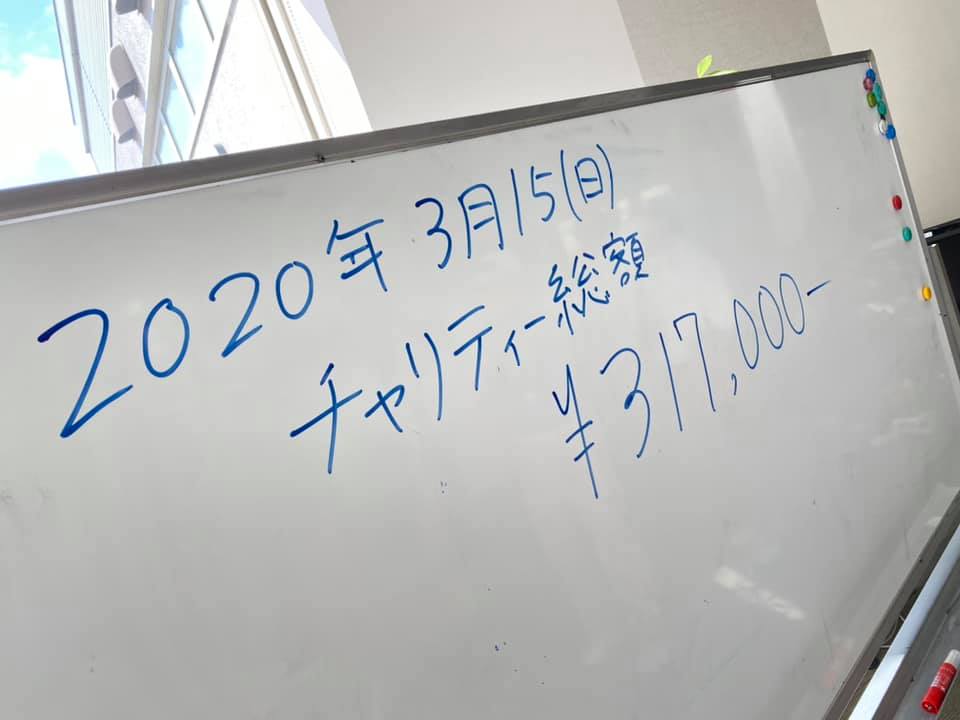 2020年 3月15(日)
チャリティー総額
¥317,000-